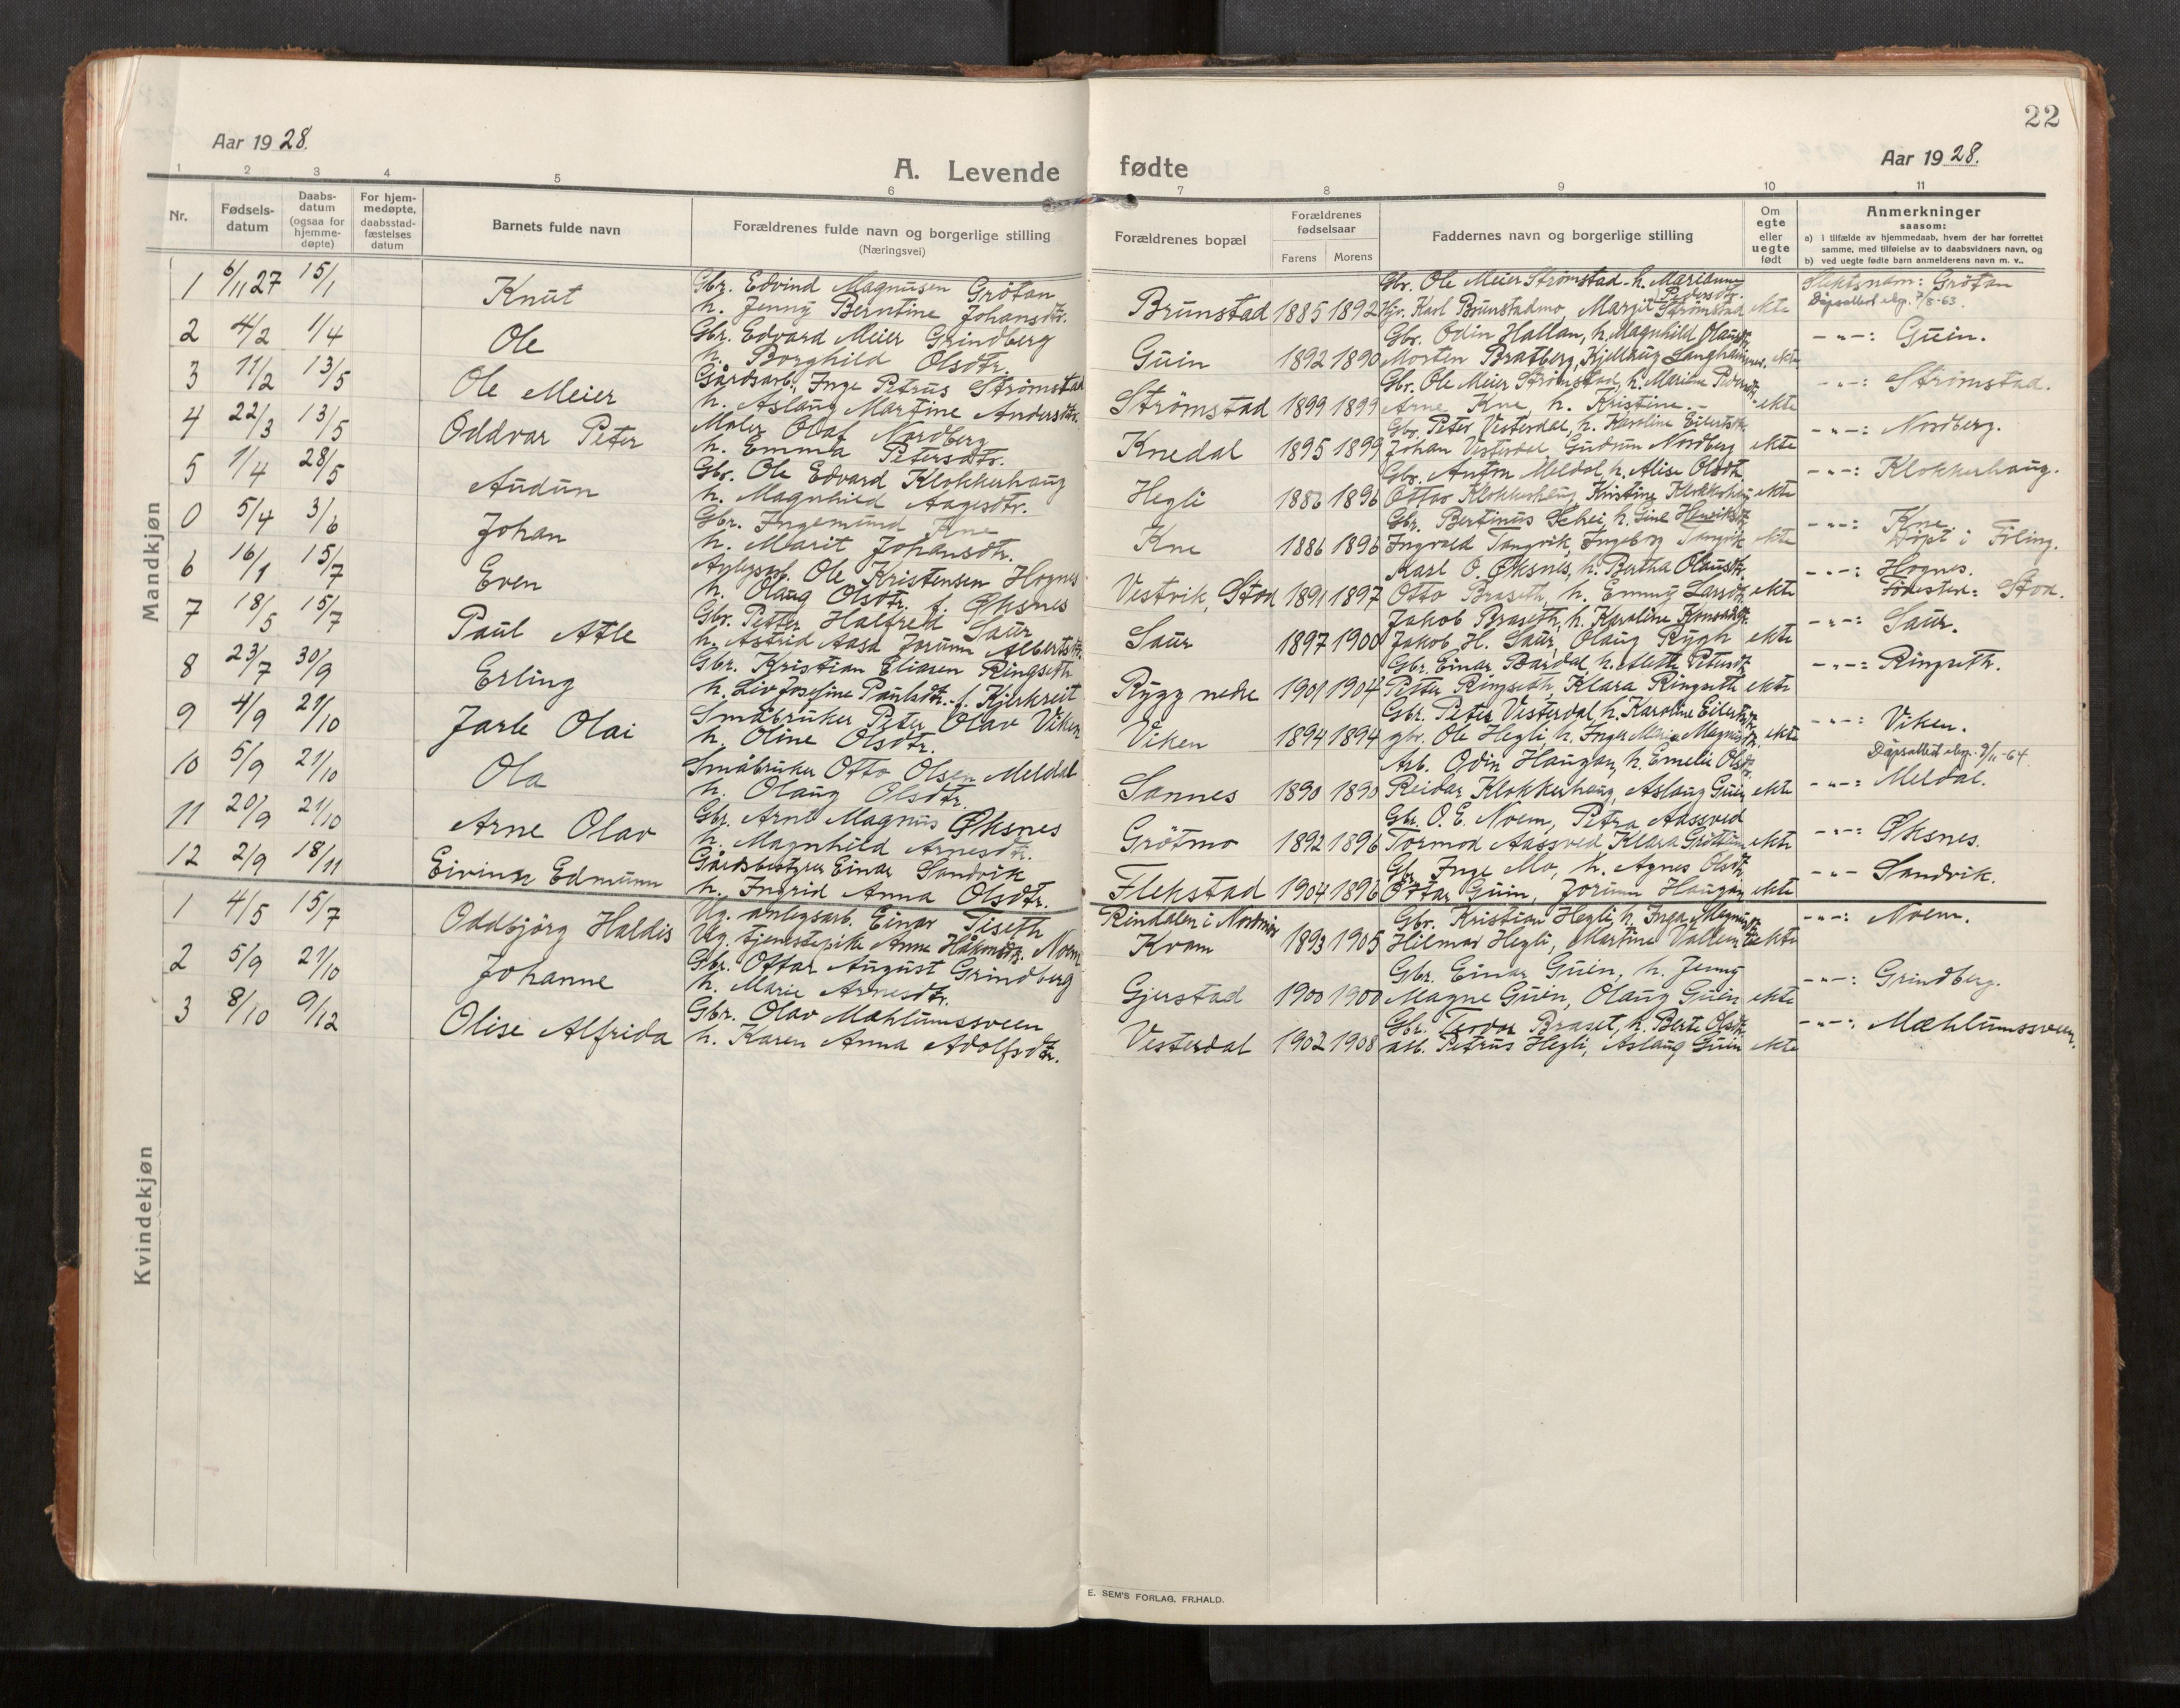 22
Aar 1928.
A. Levende fødte
Aar 1928.
1 2 3 4 5 6 7 8 9 10 11
Nr.
Fødselsdatum
Daabsdatum (ogsaa for hjemmedøpte)
For hjemmedøpte, daabsstadfæstelses datum
Barnets fulde navn
Forældrenes fulde navn og borgerlige stilling
(Næringsvei)
Forældrenes bopæl
Forældrenes fødselsaar
Farens Morens
Faddernes navn og borgerlige stilling
Om egte eller uegte født
Anmerkninger
saasom:
a) i tilfælde av hjemmedaab, hvem der har forrettet samme, med tilføielse av to daabsvidners navn, og
b) ved uegte fødte barn anmelderens navn m. v..
Mandkjøn
1 6/11 27 15/1 Knut Gbr. Edvind Magnusen Grötan
h. Jenny Berntine Johansdtr. Brunstad 1885 1892
Gbr. Ole Meier Strømstad - h. Marianne Pedersdtr.
Karl Brunstadmo, Margit Strømstad ekte
Slektsnam: Grötan
Dåpsattest 7/8-63.
2 4/2 1/4 Ole Gbr. Edvard Meier Grindberg
h. Borghild Olsdtr. Guin 1892 1890
Gbr. Odin Hallan, h. Magnhild
Morten Bratberg, Kjellaug
-"-: Guin.
3 11/2 13/5 Ole Meier Gårdsarb. Inge Petrus Strömstad
h. Aslaug Martine Andersdtr. Strömstad 1899 1899
Gbr. Ole Meier Strömstad, h.
Arne Kne, h. Kristine. ekte
-"-: Strömstad.
4 22/3 13/5 Oddvar Peter Maler Olaf Nordberg
h. Emma Petersdtr. Knedal 1895 1899
Gbr. Peter Vesterdal, h. Karoline Eilertsdtr.
Johan Vesterdal, Gudrun Nordberg ekte
-"-: Nordberg.
5 1/4 28/5 Audun Gbr. Ole Edvard Klokkerhaug
h. Magnhild Aagesdtr. Hegli 1886 1896
Gbr. Anton Meldal, h. Alise Olsdtr.
Ottar Klokkerhaug, Kristine Klokkerhaug ekte
-"-: Klokkerhaug.
0 5/4 3/6 Johan Gbr. Ingemund Kne
h. Marit Johansdtr. Kne 1886 1896
Gbr. Bertinus Schei, h. Gine Henriksdtr.
Ingvald Tangvik, Ingeborg Tangvik ekte
-"-: Kne
Döpt i Følling.
6 16/1 15/7 Even Anlegsarb. Ole Kristensen Hognes
h. Olaug Olsdtr. f. Øksnes Vestvik, Stod 1891 1897
Karl O. Øksnes, h. Bertha Olausdtr.
Otto Braseth, h. Emmy Larsdtr. ekte
-"-: Hognes.
Fødested: Stod.
7 18/5 15/7 Paul Atle Gbr. Petter Halfred Saur
h. Astrid Aasa Jorunn Albertsdtr. Saur 1897 1900
Jakob Braseth, h. Karoline
Jakob H. Saur, Olaug Rygh ekte
-"-: Saur.
8 23/7 30/9 Erling Gbr. Kristian Eliasen Ringseth
h. Liv Josefine Paulsdtr. f. Kjerkreit Rygg nedre 1901 1904
Gbr. Einar Bardal, h. Alette Petersdtr.
Petter Ringseth, Klara Ringseth ekte
-"-: Ringseth.
9 4/9 21/10 Jarle Olai Småbruker Peter Olav Viken
h. Oline Olsdtr. Viken 1894 1894
Gbr. Peter Vesterdal, h. Karoline Eilertsdtr.
gbr. Ole Hegli, h. Inger Marie Magnusdtr. ekte
-"-: Viken.
Dåpsattest 9/11-64.
10 5/9 21/10 Ola Småbruker Otto Olsen Meldal
h. Olaug Olsdtr. Sannes 1890 1890
Arb. Odin Haugan, h. Emelie Olsdtr.
Reidar Klokkerhaug, Aslaug Guin ekte
-"-: Meldal.
11 20/9 21/10 Arne Olav Gbr. Arne Magnus Øksnes
h. Magnhild Arnesdtr. Grötmo 1892 1896
Gbr. O. E. Noem, Petra Aassved
Tormod Aassved, Klara ekte
-"-: Øksnes.
12 2/9 18/11 Eivind Edmunn Gårdsbestyrer Einar Sandvik
h. Ingrid Anna Olsdtr. Flekstad 1904 1896
Gbr. Inge Mo, h. Agnes Olsdtr.
Ottar Guin, Jorunn Haugan ekte
-"- Sandvik.
Kvindekjøn
1 4/5 15/7 Oddbjörg Haldis Ug. anlegsarb. Einar Tiseth
Ug. tjenestepike Anna Håkonsdtr. Noem Rindalen i Nordmør
Kvam 1893 1905
Gbr. Kristian Hegli, h. Inga Magnusdtr.
Hilmar Hegli, Martine uekte
-"-: Noem.
2 5/9 21/10 Johanne Gbr. Ottar August Grindberg
h. Marie Arnesdtr. Gjerstad 1900 1900
Gbr. Einar Guin, h. Jenny
Magne Guin, Olaug Guin ekte
-"-: Grindberg.
3 8/10 9/12 Olise Alfrida Gbr. Olav Mæhlumssveen
h. Karen Anna Adolfsdtr. Vesterdal 1902 1908
Gbr. Teodor Braset, h. Berte Olsdtr.
arb. Petrus Hegli, Aslaug Guin ekte
-"-: Mæhlumssveen.
E. SEM'S FORLAG, FR.HALD.